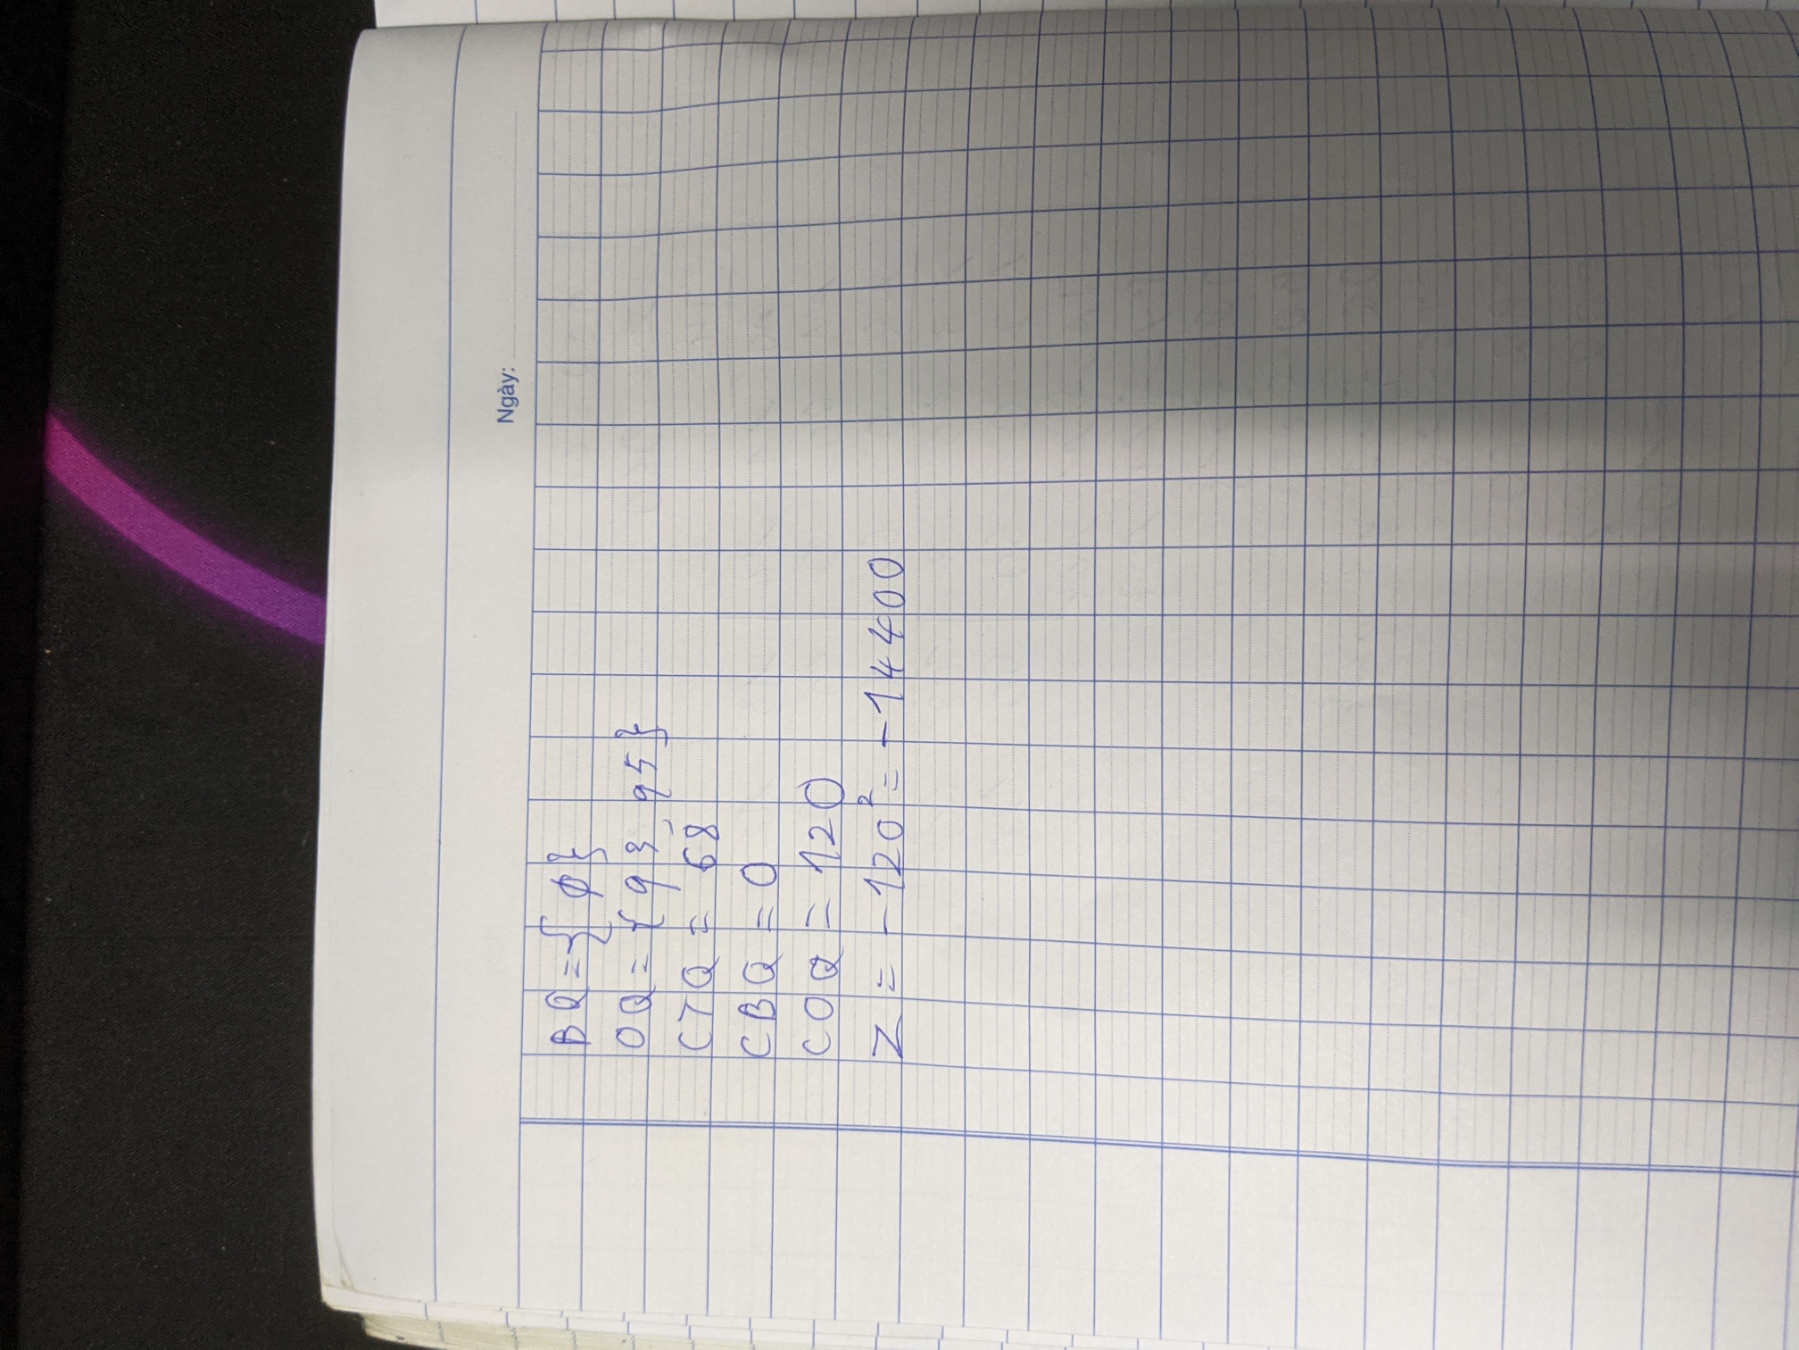 Ngày:
BQ = { ∅ }
OQ = { q3, q5 }
CTQ = 68
CBQ = 0
COQ = 120
Z = -120² = -14400